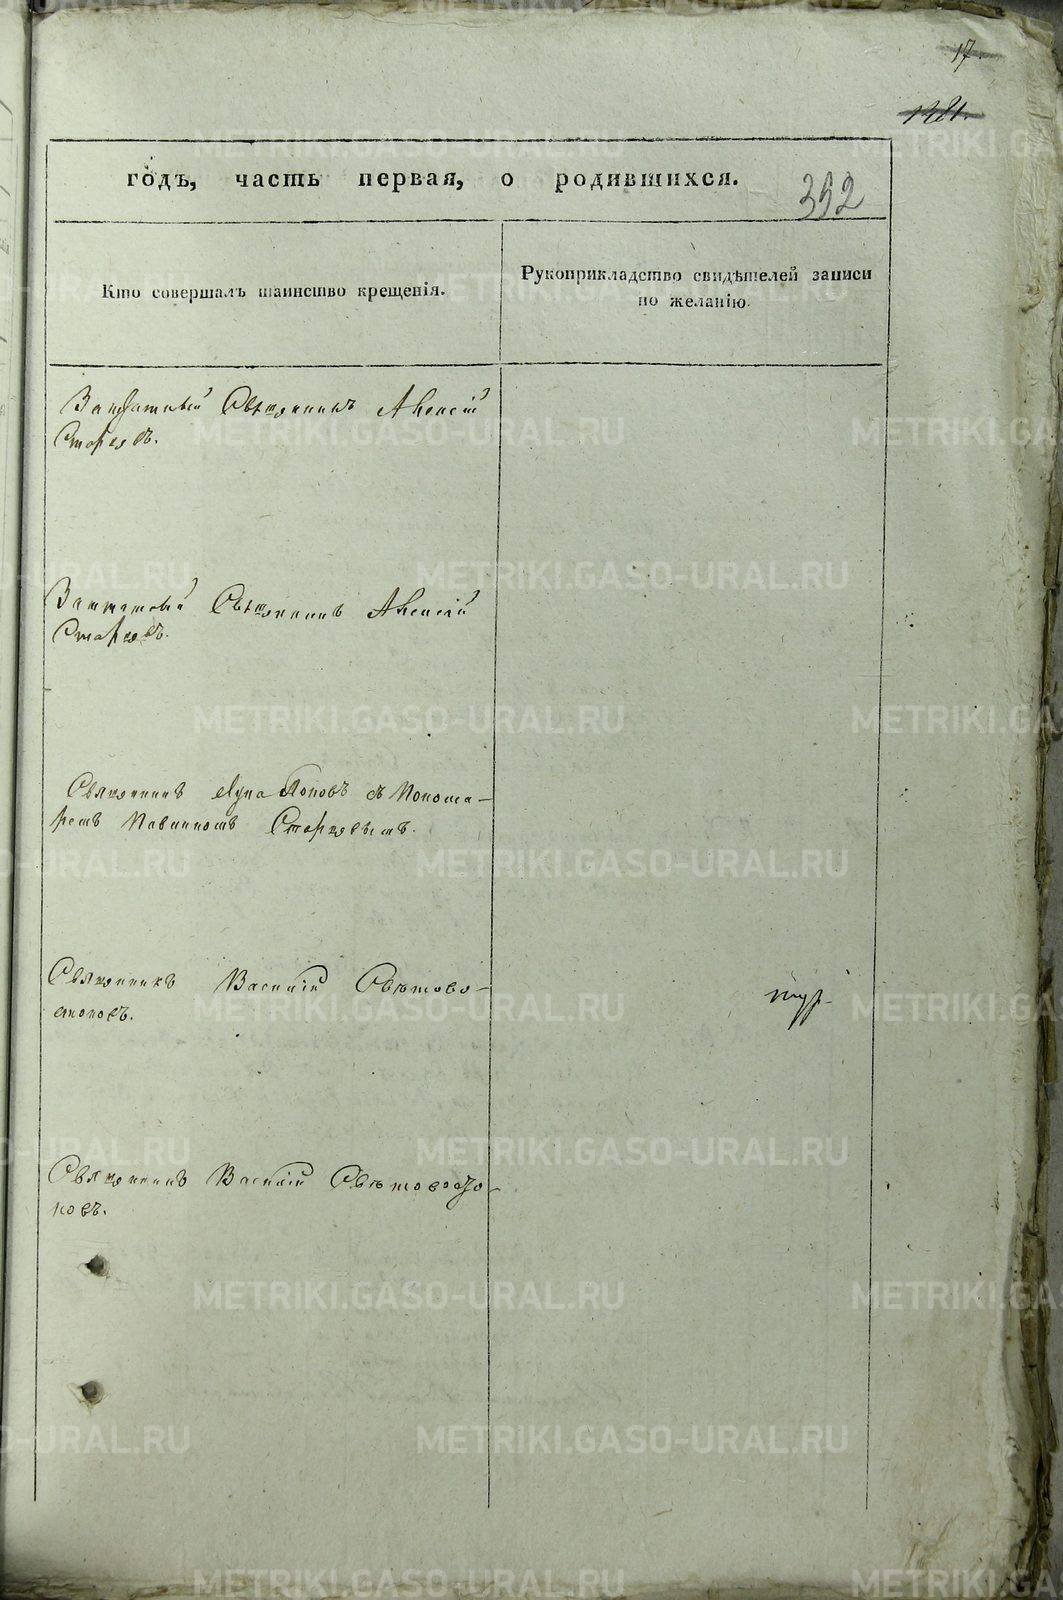 17.
1481.
годъ, часть первая, о родившихся.
392
Кто совершалъ таинство крещенія.
Рукоприкладство свидѣтелей записи
по желанію.
Заштатный Священникъ Алексій
Старцовъ.
Заштатный Священникъ Алексій
Старцовъ.
Священникъ Лука Поповъ съ Понома-
ремъ Павлиномъ Старцовымъ.
Священникъ Василій Свѣтово-
строковъ.
Священникъ Василій Свѣтово
ковъ.
METRIKI.GASO-URAL.RU